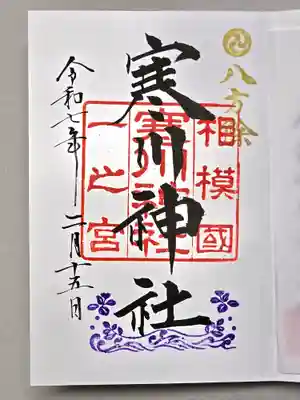 八方除
寒川神社
相模國
寒川神社
一之宮
令和七年二月十五日